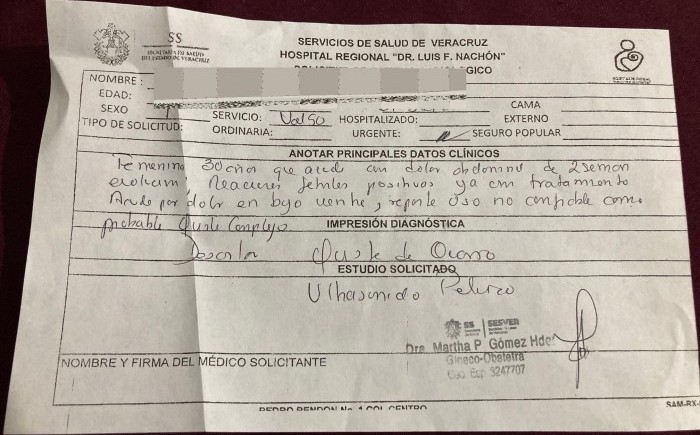 SS
SECRETARÍA DE SALUD
DEL ESTADO DE VERACRUZ
SERVICIOS DE SALUD DE VERACRUZ
HOSPITAL REGIONAL "DR. LUIS F. NACHÓN"
NOMBRE:
EDAD:
SEXO
SERVICIO:
HOSPITALIZADO:
CAMA
EXTERNO
TIPO DE SOLICITUD:
ORDINARIA:
URGENTE:
SEGURO POPULAR
ANOTAR PRINCIPALES DATOS CLÍNICOS
Femenino 30 años que acude con dolor abdominal de 2 seman
evolucion, Reacciones febriles positivas ya en tratamiento
Acude por dolor en bajo vientre, reporte USG no confiable como
probable Quiste Complejo
IMPRESIÓN DIAGNÓSTICA
Descartar Quiste de Ovario
ESTUDIO SOLICITADO
Ultrasonido Pelvico
SS SESVER
Dra. Martha P Gómez Hdez
Gineco-Obstetra
Esp 3247707
NOMBRE Y FIRMA DEL MÉDICO SOLICITANTE
PEDRO RENDON No. 1 COL CENTRO
SAM-RX-